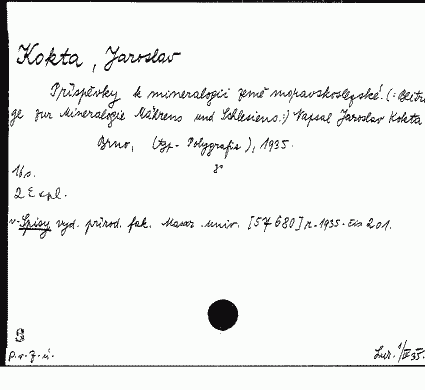 Kokta, Jaroslav
Příspěvky k mineralogii země moravskoslezské. (:Beiträ
ge zur Mineralogie Mährens und Schlesiens:) Napsal Jaroslav Kokta
Brno, (typ. Polygrafia), 1935.
8°
16 s.
2 Expl.
v-Spisy vyd. přírod. fak. Masar. univ. [57680] r. 1935. čís 201.
Lur. 1/IX 35.